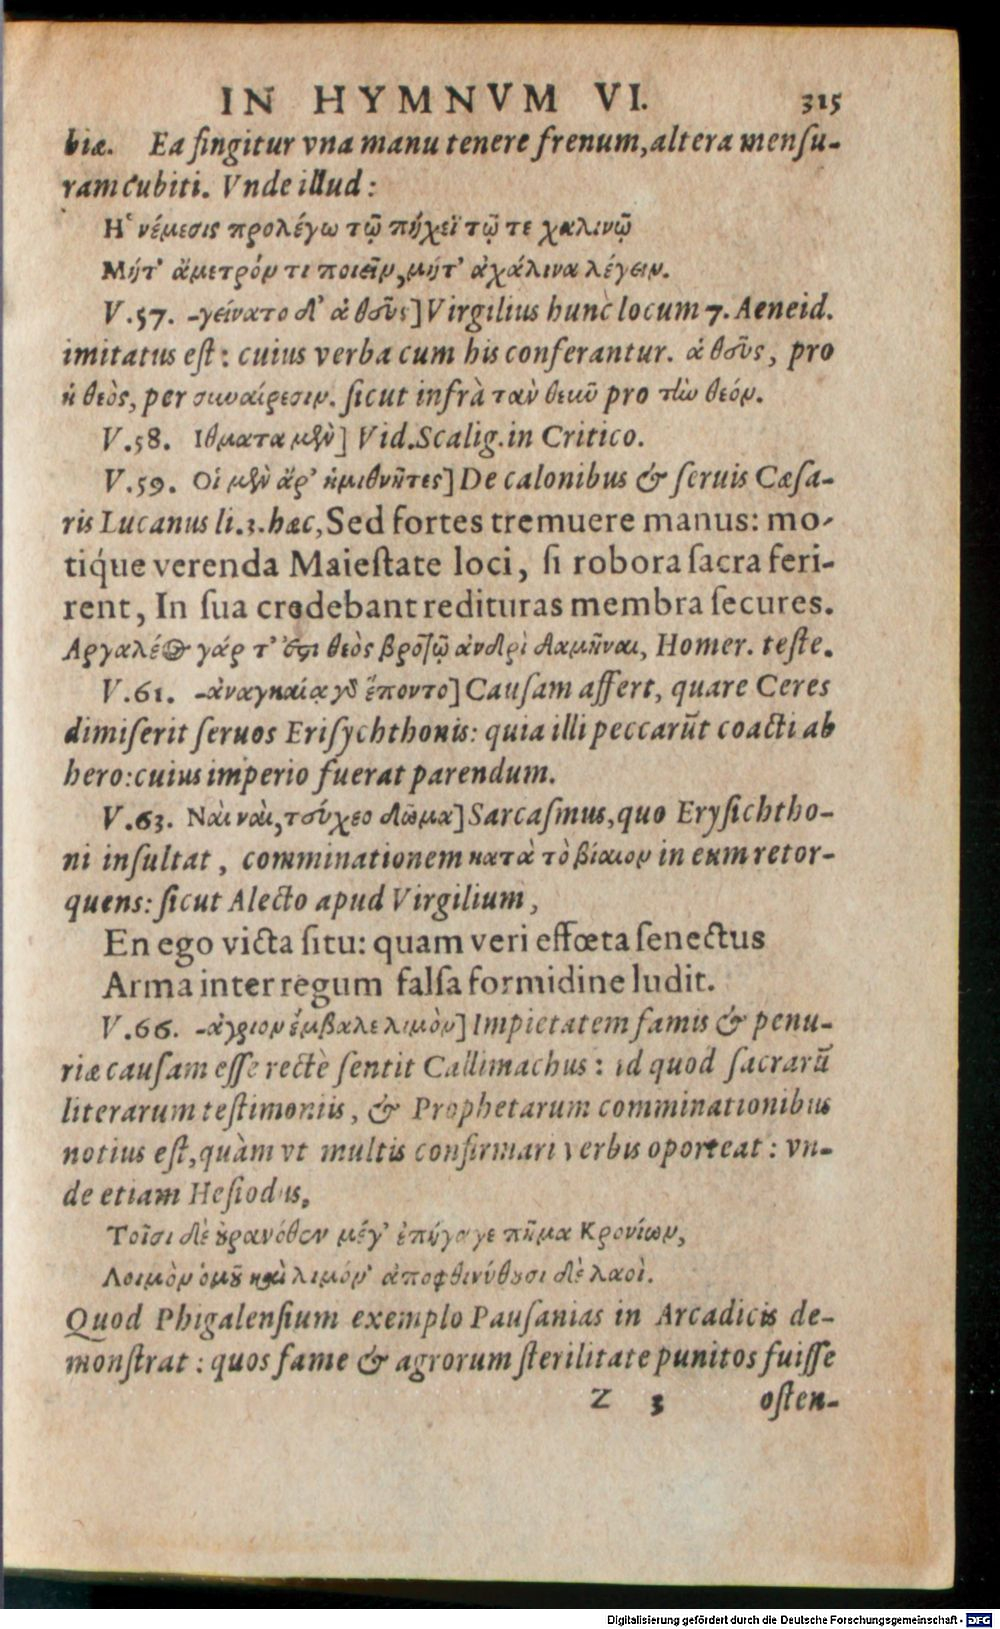 IN HYMNVM VI. 315
biæ. Ea fingitur vna manu tenere frenum, altera mensu-
ram cubiti. Vnde illud:
Ἡ νέμεσις προλέγω τῷ πήχεϊ τῷ τε χαλινῷ
Μήτ' ἄμετρόν τι ποιεῖν, μήτ' ἀχάλινα λέγειν.
V.57. -γείνατο δ' ἁ θεῦς] Virgilius hunc locum 7. Aeneid.
imitatus est: cuius verba cum his conferantur. ἁ θεῦς, pro
ἡ θεὸς, per συναίρεσιν. sicut infrà τὰν θεῦν pro τὴν θεόν.
V.58. Ιθματα μὲν] Vid. Scalig. in Critico.
V.59. Οἱ μὲν ἄρ' ἡμιθνῆτες] De calonibus & seruis Cæsa-
ris Lucanus li.3. hæc, Sed fortes tremuere manus: mo-
tíque verenda Maiestate loci, si robora sacra feri-
rent, In sua credebant redituras membra secures.
Αργαλέος γάρ τ' ἔστι θεὸς βροτῷ ἀνδρὶ δαμῆναι, Homer. teste.
V.61. -ἀναγκαίᾳ γὰρ ἕποντο] Causam affert, quare Ceres
dimiserit seruos Erisychthonis: quia illi peccarūt coacti ab
hero: cuius imperio fuerat parendum.
V.63. Ναὶ ναὶ, τεύχεο δῶμα] Sarcasmus, quo Erysichtho-
ni insultat, comminationem κατὰ τὸ βίαιον in eum retor-
quens: sicut Alecto apud Virgilium,
En ego victa situ: quam veri effœta senectus
Arma inter regum falsa formidine ludit.
V.66. -ἄγριον ἔμβαλε λιμὸν] Impietatem famis & penu-
riæ causam esse rectè sentit Callimachus: id quod sacrarū
literarum testimoniis, & Prophetarum comminationibus
notius est, quàm vt multis confirmari verbis oporteat: vn-
de etiam Hesiodus,
Τοῖσι δὲ οὐρανόθεν μέγ' ἐπήγαγε πῆμα Κρονίων,
Λοιμὸν ὁμοῦ καὶ λιμόν· ἀποφθινύθουσι δὲ λαοὶ.
Quod Phigalensium exemplo Pausanias in Arcadicis de-
monstrat: quos fame & agrorum sterilitate punitos fuisse
Z 3 osten-
Digitalisierung gefördert durch die Deutsche Forschungsgemeinschaft - DFG